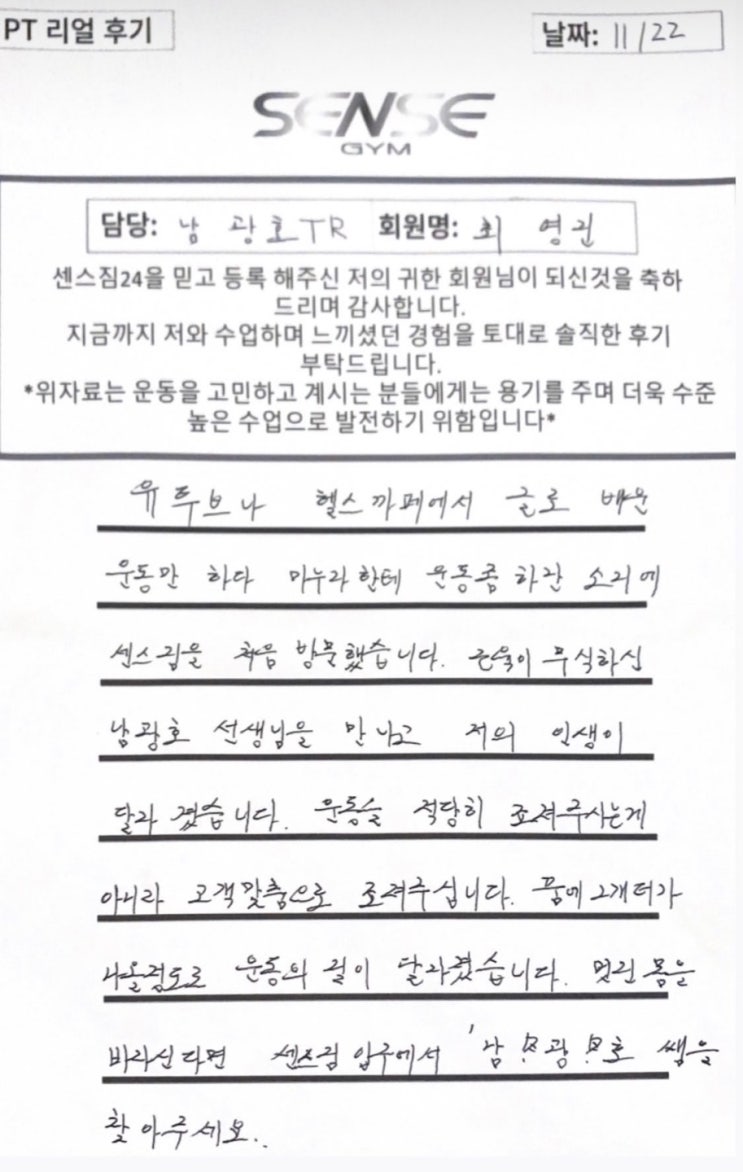 PT 리얼 후기
날짜: 11/22
SENSE
GYM
담당: 남 광호TR 회원명: 최 영권
센스짐24을 믿고 등록 해주신 저의 귀한 회원님이 되신것을 축하
드리며 감사합니다.
지금까지 저와 수업하며 느끼셨던 경험을 토대로 솔직한 후기
부탁드립니다.
*위자료는 운동을 고민하고 계시는 분들에게는 용기를 주며 더욱 수준
높은 수업으로 발전하기 위함입니다*
유투브나 헬스까페에서 글로 배운
운동만 하다 마누라한테 운동좀 하란 소리에
센스짐을 처음 방문했습니다. 근육이 무식하신
남광호 선생님을 만나고 저의 인생이
달라졌습니다. 운동을 적당히 조져주시는게
아니라 고객맞춤으로 조져주십니다. 꿈에 그개터가
나올정도로 운동의 질이 달라졌습니다. 멋진 몸을
바라신다면 센스짐 입구에서 '남 광 호 쌤을
찾아주세요..